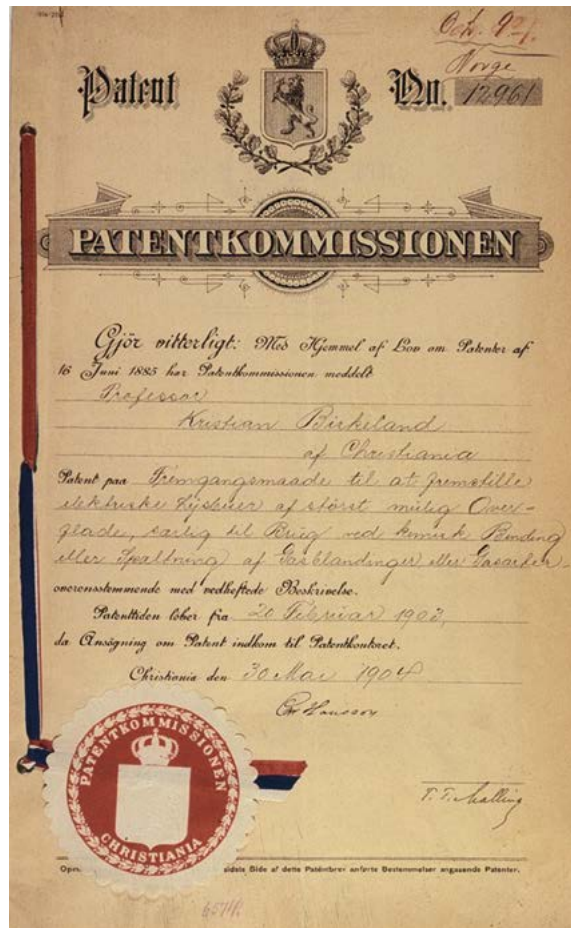 Norge
Patent
No. 12961
PATENTKOMMISSIONEN
Gjör vitterligt: Med Hjemmel af Lov om Patenter af
16 Juni 1885 har Patentkommissionen meddelt
Professor
Kristian Birkeland
af Christiania
Patent paa Fremgangsmaade til at fremstille
elektriske Lysbuer af störst mulig Over-
flade, särlig til Brug ved kemisk Binding
eller Spaltning af Gasblandinger eller Gasarter
overensstemmende med vedheftede Beskrivelse.
Patenttiden löber fra 20 Februar 1903,
da Ansögning om Patent indkom til Patentkontoret.
Christiania den 30 Mai 1904
PATENTKOMMISSIONEN
CHRISTIANIA
Side af dette Patentbrev anförte Bestemmelser angaaende Patenter.